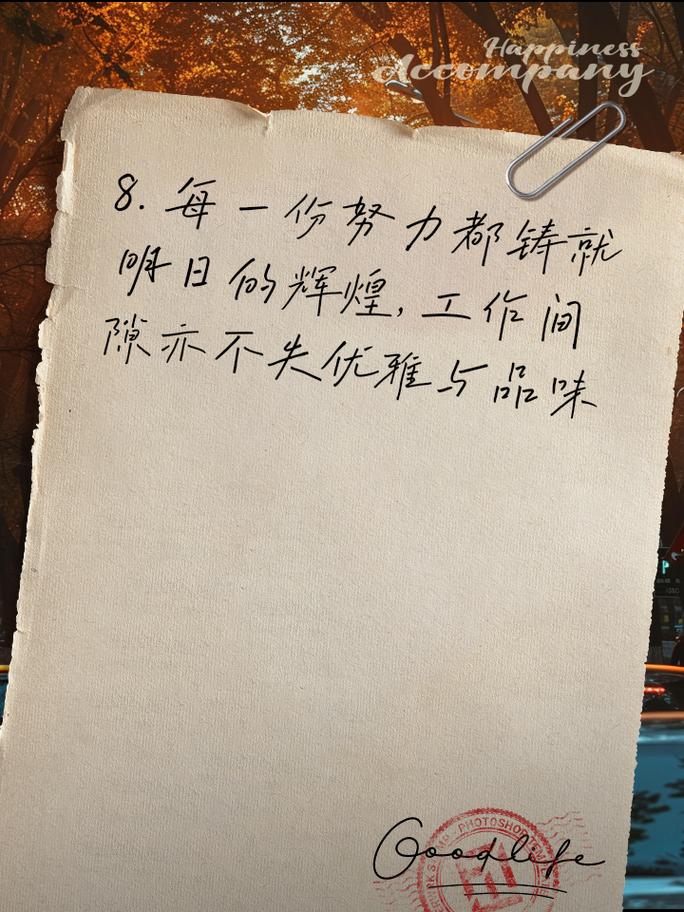 Happiness
Accompany
8. 每一份努力都铸就
明日的辉煌，工作间
隙亦不失优雅与品味
PHOTOSHOP
Goodlife